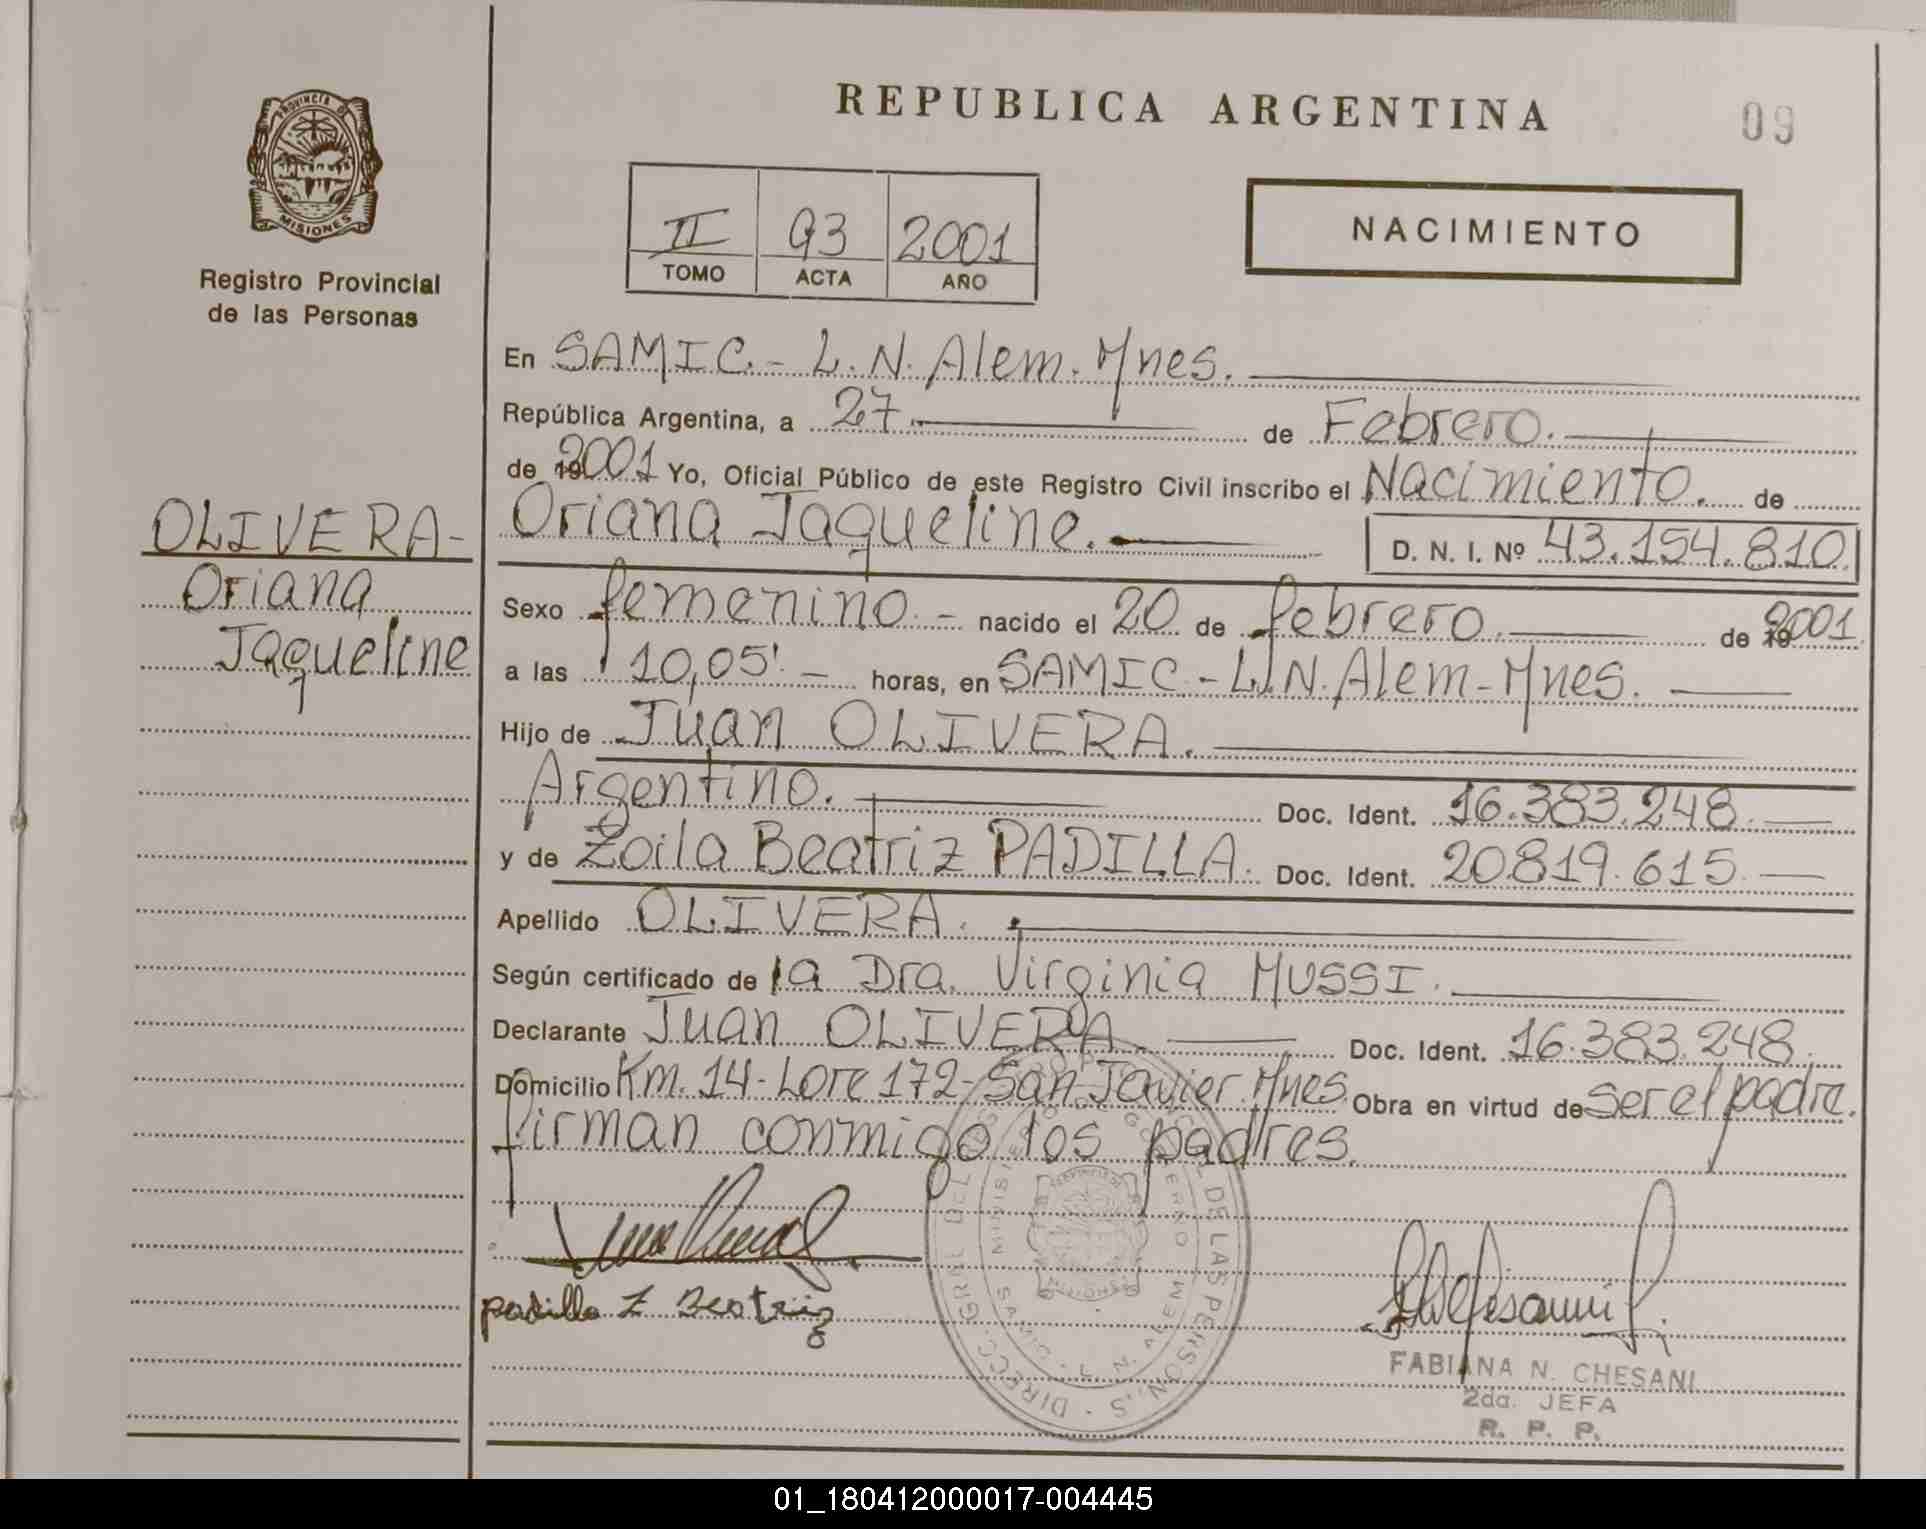 REPUBLICA ARGENTINA
09
PROVINCIA DE
MISIONES
Registro Provincial
de las Personas
II 93 2001
TOMO ACTA AÑO
NACIMIENTO
En SAMIC.- L.N. Alem. Mnes.
República Argentina, a 27 de Febrero.
de 192001 Yo, Oficial Público de este Registro Civil inscribo el Nacimiento. de
Oriana Jaqueline. D. N. I. Nº 43.154.810
OLIVERA-
Oriana
Jaqueline
Sexo femenino.- nacido el 20 de febrero. de 192001
a las 10,05'.- horas, en SAMIC.-L.N. Alem-Mnes.
Hijo de Juan OLIVERA.
Argentino. Doc. Ident. 16.383.248.
y de Zoila Beatriz PADILLA. Doc. Ident. 20819.615
Apellido OLIVERA.
Según certificado de la Dra. Virginia MUSSI.
Declarante Juan OLIVERA Doc. Ident. 16.383.248.
Domicilio Km. 14-Lote 172-San Javier. Mnes. Obra en virtud de ser el padre.
firman conmigo los padres.
padilla Z Beatriz
FABIANA N. CHESANI
2da. JEFA
R. P. P.
01_180412000017-004445